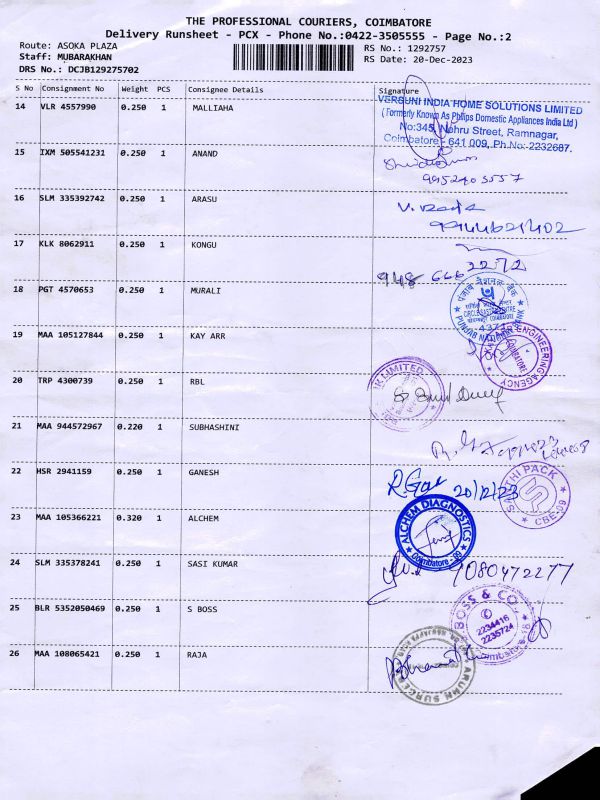 THE PROFESSIONAL COURIERS, COIMBATORE
Delivery Runsheet - PCX - Phone No.:0422-3505555 - Page No.:2
Route: ASOKA PLAZA
RS No.: 1292757
Staff: MUBARAKHAN
RS Date: 20-Dec-2023
DRS No.: DCJB129275702
S No Consignment No Weight PCS Consignee Details Signature
14 VLR 4557990 0.250 1 MALLIAHA
VERSUNI INDIA HOME SOLUTIONS LIMITED
(Formerly Known As Philips Domestic Appliances India Ltd)
No:345, Nehru Street, Ramnagar,
Coimbatore - 641 009, Ph.No: 2232687.
15 IXM 505541231 0.250 1 ANAND
9952403557
16 SLM 335392742 0.250 1 ARASU
9944621402
17 KLK 8062911 0.250 1 KONGU
948 666 2272
18 PGT 4570653 0.250 1 MURALI
पंजाब नैशनल बैंक
PUNJAB NATIONAL BANK
19 MAA 105127844 0.250 1 KAY ARR
ENGINEERING AGENCY
COIMBATORE
20 TRP 4300739 0.250 1 RBL
LIMITED
21 MAA 944572967 0.220 1 SUBHASHINI
22 HSR 2941159 0.250 1 GANESH
20/12/23
PACK
CBE-09
23 MAA 105366221 0.320 1 ALCHEM
ALCHEM DIAGNOSTICS
Coimbatore - 09
24 SLM 335378241 0.250 1 SASI KUMAR
9080472277
25 BLR 5352050469 0.250 1 S BOSS
BOSS & CO
2234416
2235724
26 MAA 108065421 0.250 1 RAJA